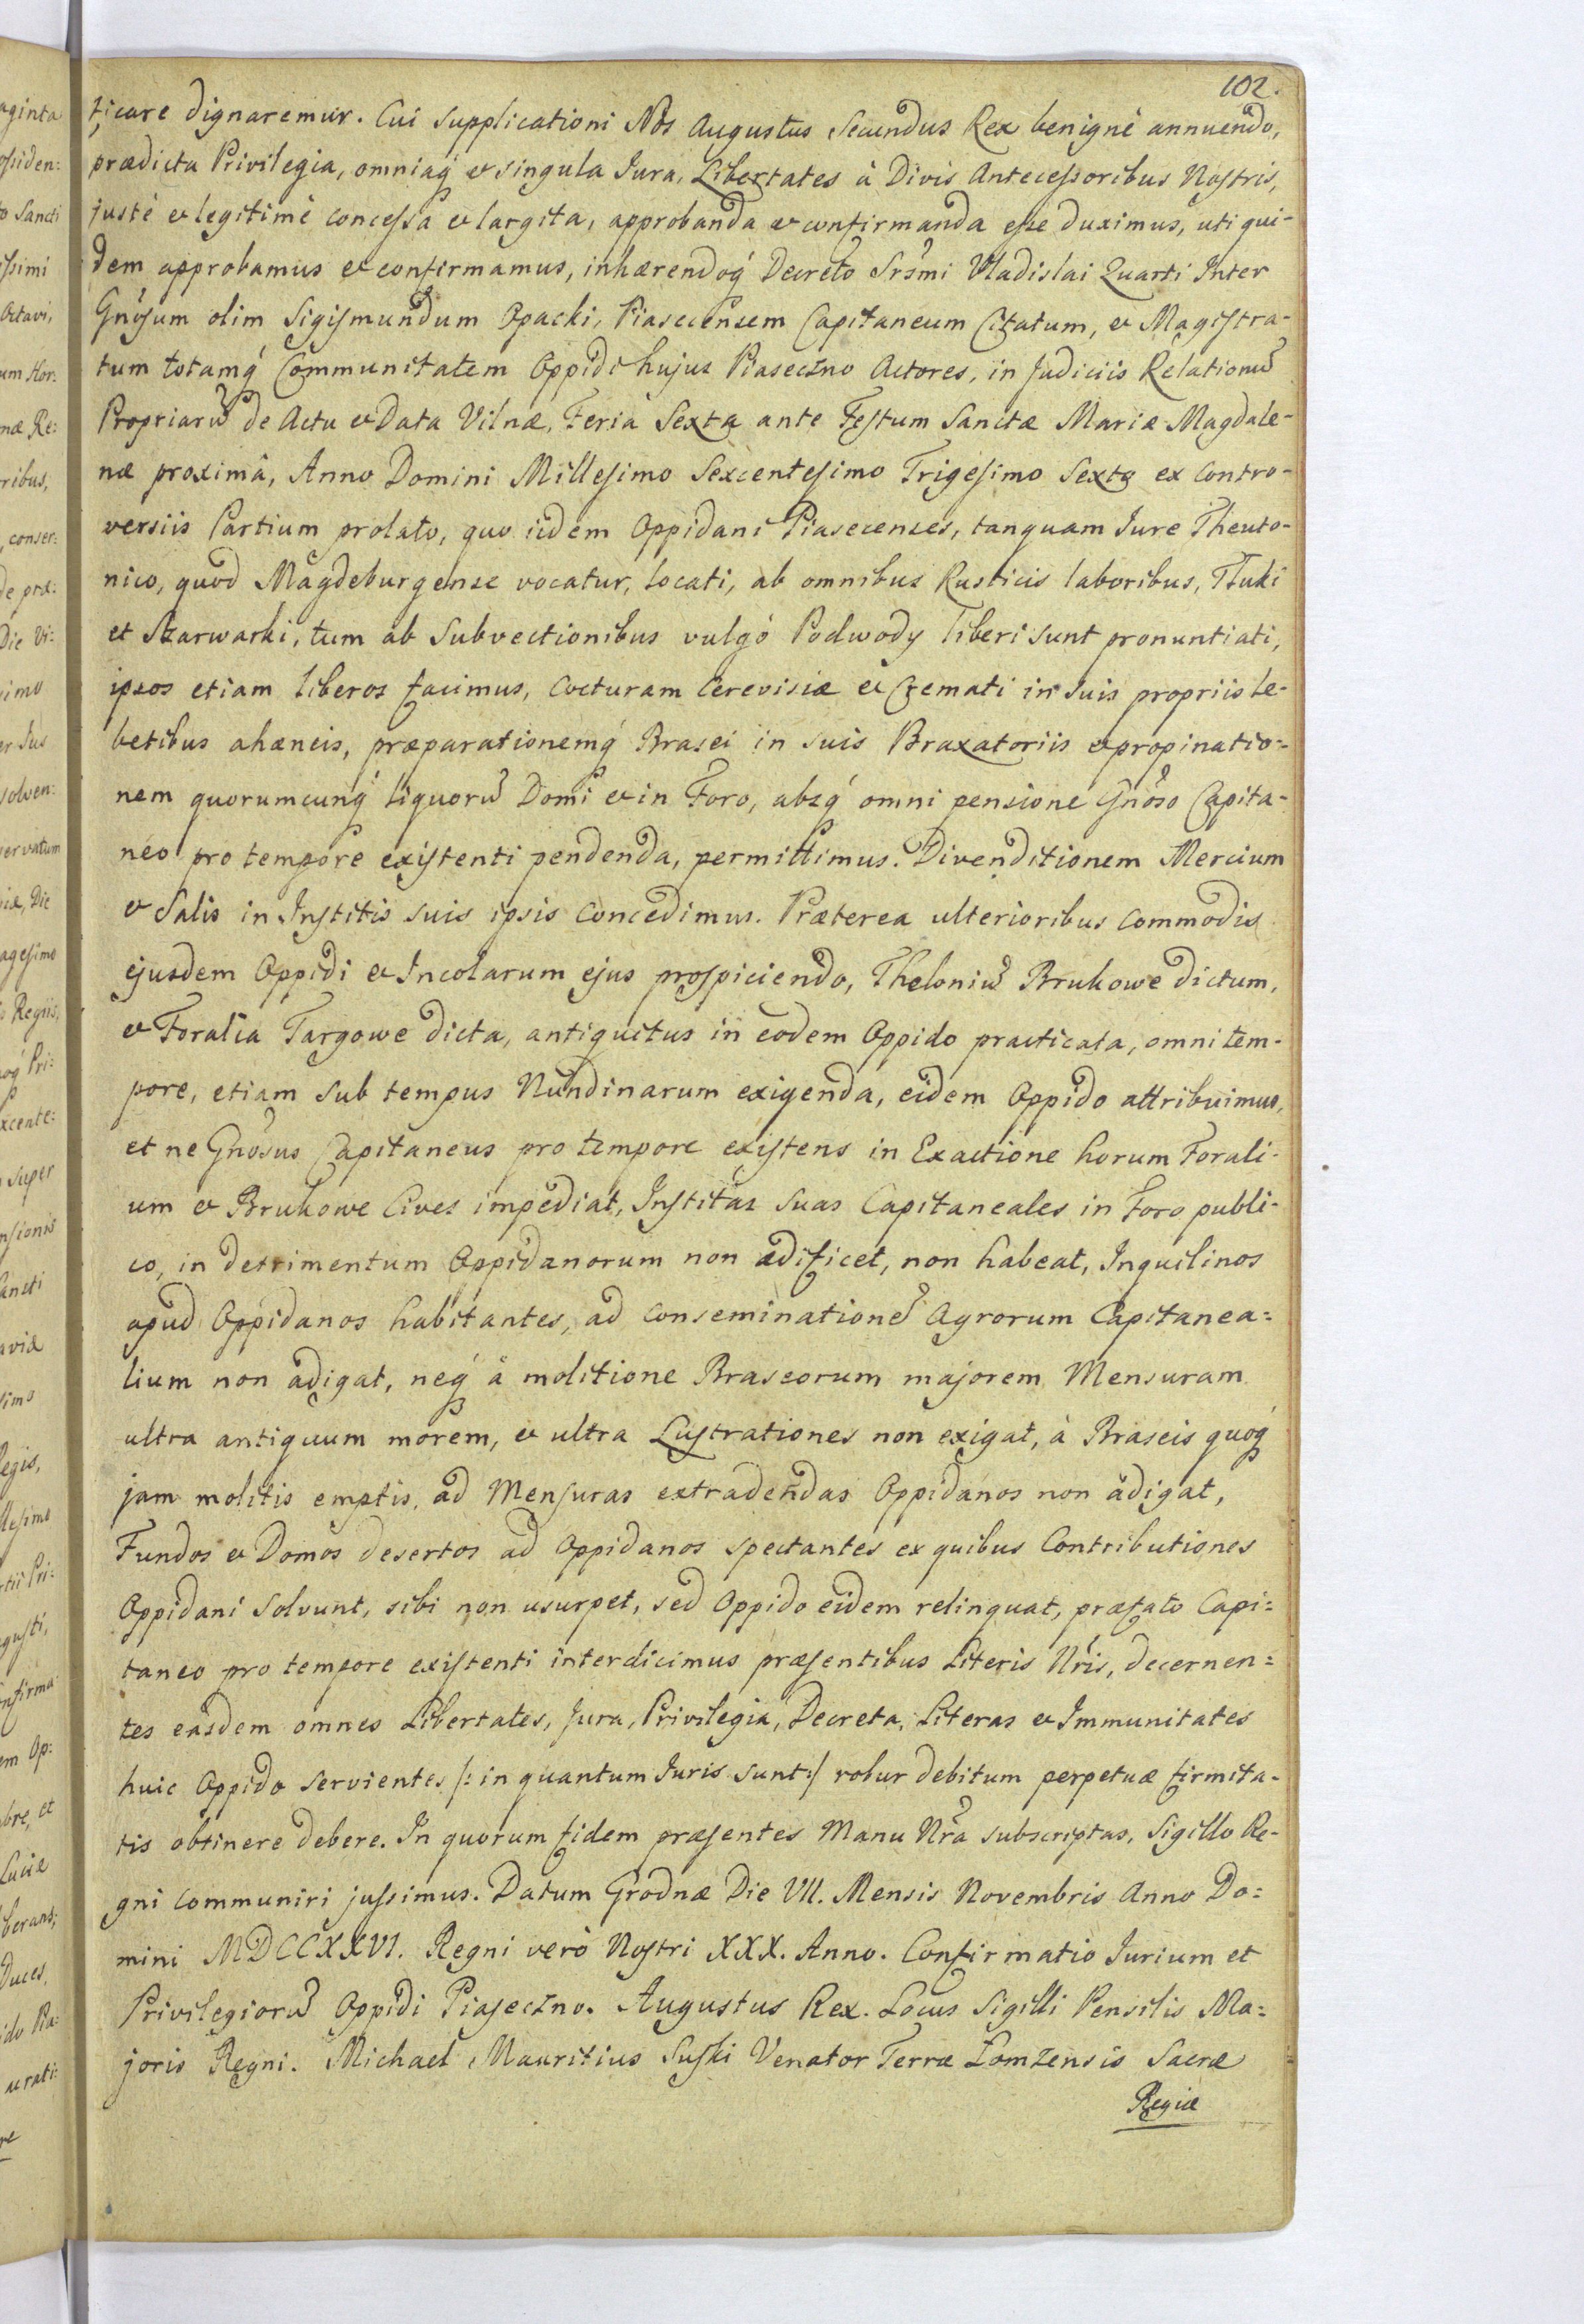 102.
ficare dignaremur. Cui supplicationi Nos Augustus Secundus Rex benignè annuendo,
prædicta Privilegia, omniaq́ et singula Jura, Libertates à Divis Antecessoribus Nostris,
justè et legitimè concessa et largita, approbanda et confirmanda esse duximus, uti qui-
dem approbamus et confirmamus, inhærendoq́ Decreto Srs̃mi Vladislai Quarti Inter
Gnõsum olim Sigismundum Opacki, Piasecensem Capitaneum Citatum, et Magistra-
tum totamq́ Communitatem Oppidi hujus Piaseczno Actores, in Judiciis Relationũ
Propriarũ de Actu et Data Vilnæ, Feria Sexta ante Festum Sanctæ Mariæ Magdale-
næ proximâ, Anno Domini Millesimo Sexcentesimo Trigesimo Sexto ex contro-
versiis Partium prolato, quo iidem Oppidani Piasecenses, tanquam Jure Theuto-
nico, quod Magdeburgense vocatur, locati, ab omnibus Rusticis laboribus, Tłuki
et Szarwarki, tum ab Subvectionibus vulgò Podwody liberi sunt pronuntiati,
ipsos etiam liberos facimus, Cocturam Cerevisiæ et Cremati in suis propriis le-
betibus ahæneis, præparationemq́ Brasei in suis Braxatoriis et propinatio-
nem quorumcunq́ liquorũ Domi et in Foro, absq́ omni pensione Gnõso Capita-
neo pro tempore existenti pendenda, permittimus. Divenditionem Mercium
et Salis in Institis suis ipsis concedimus. Præterea ulterioribus commodis
ejusdem Oppidi et Incolarum ejus prospiciendo, Theloniũ Brukowe dictum,
et Foralia Targowe dicta, antiquitus in eodem Oppido practicata, omni tem-
pore, etiam sub tempus Nundinarum exigenda, eidem Oppido attribuimus,
et ne Gnõsus Capitaneus pro tempore existens in Exactione horum Forali-
um et Brukowe Cives impediat, Institas suas Capitaneales in Foro publi-
co, in detrimentum Oppidanorum non ædificet, non habeat, Inquilinos
apud Oppidanos habitantes, ad conseminationẽ Agrorum Capitanea=
lium non adigat, neq́ à molitione Braseorum majorem Mensuram
ultra antiquum morem, et ultra Lustrationes non exigat, à Braseis quoq́
jam molitis emptis, ad Mensuras extradendas Oppidanos non adigat,
Fundos et Domos desertos ad Oppidanos spectantes ex quibus Contributiones
Oppidani solvunt, sibi non usurpet, sed Oppido eidem relinquat, præfato Capi=
taneo pro tempore existenti interdicimus præsentibus Literis Nr̃is, decernen=
tes easdem omnes Libertates, Jura, Privilegia, Decreta, Literas et Immunitates
huic Oppido servientes /: in quantum Juris sunt :/ robur debitum perpetuæ firmita-
tis obtinere debere. In quorum fidem præsentes Manu Nr̃a subscriptas, Sigillo Re-
gni communiri jussimus. Datum Grodnæ Die VII. Mensis Novembris Anno Do=
mini MDCCXXVI. Regni verò Nostri XXX. Anno. Confirmatio Jurium et
Privilegiorũ Oppidi Piaseczno. Augustus Rex. Locus Sigilli Pensilis Ma=
joris Regni. Michael Mauritius Suski Venator Terræ Łomzensis Sacræ
Regiæ